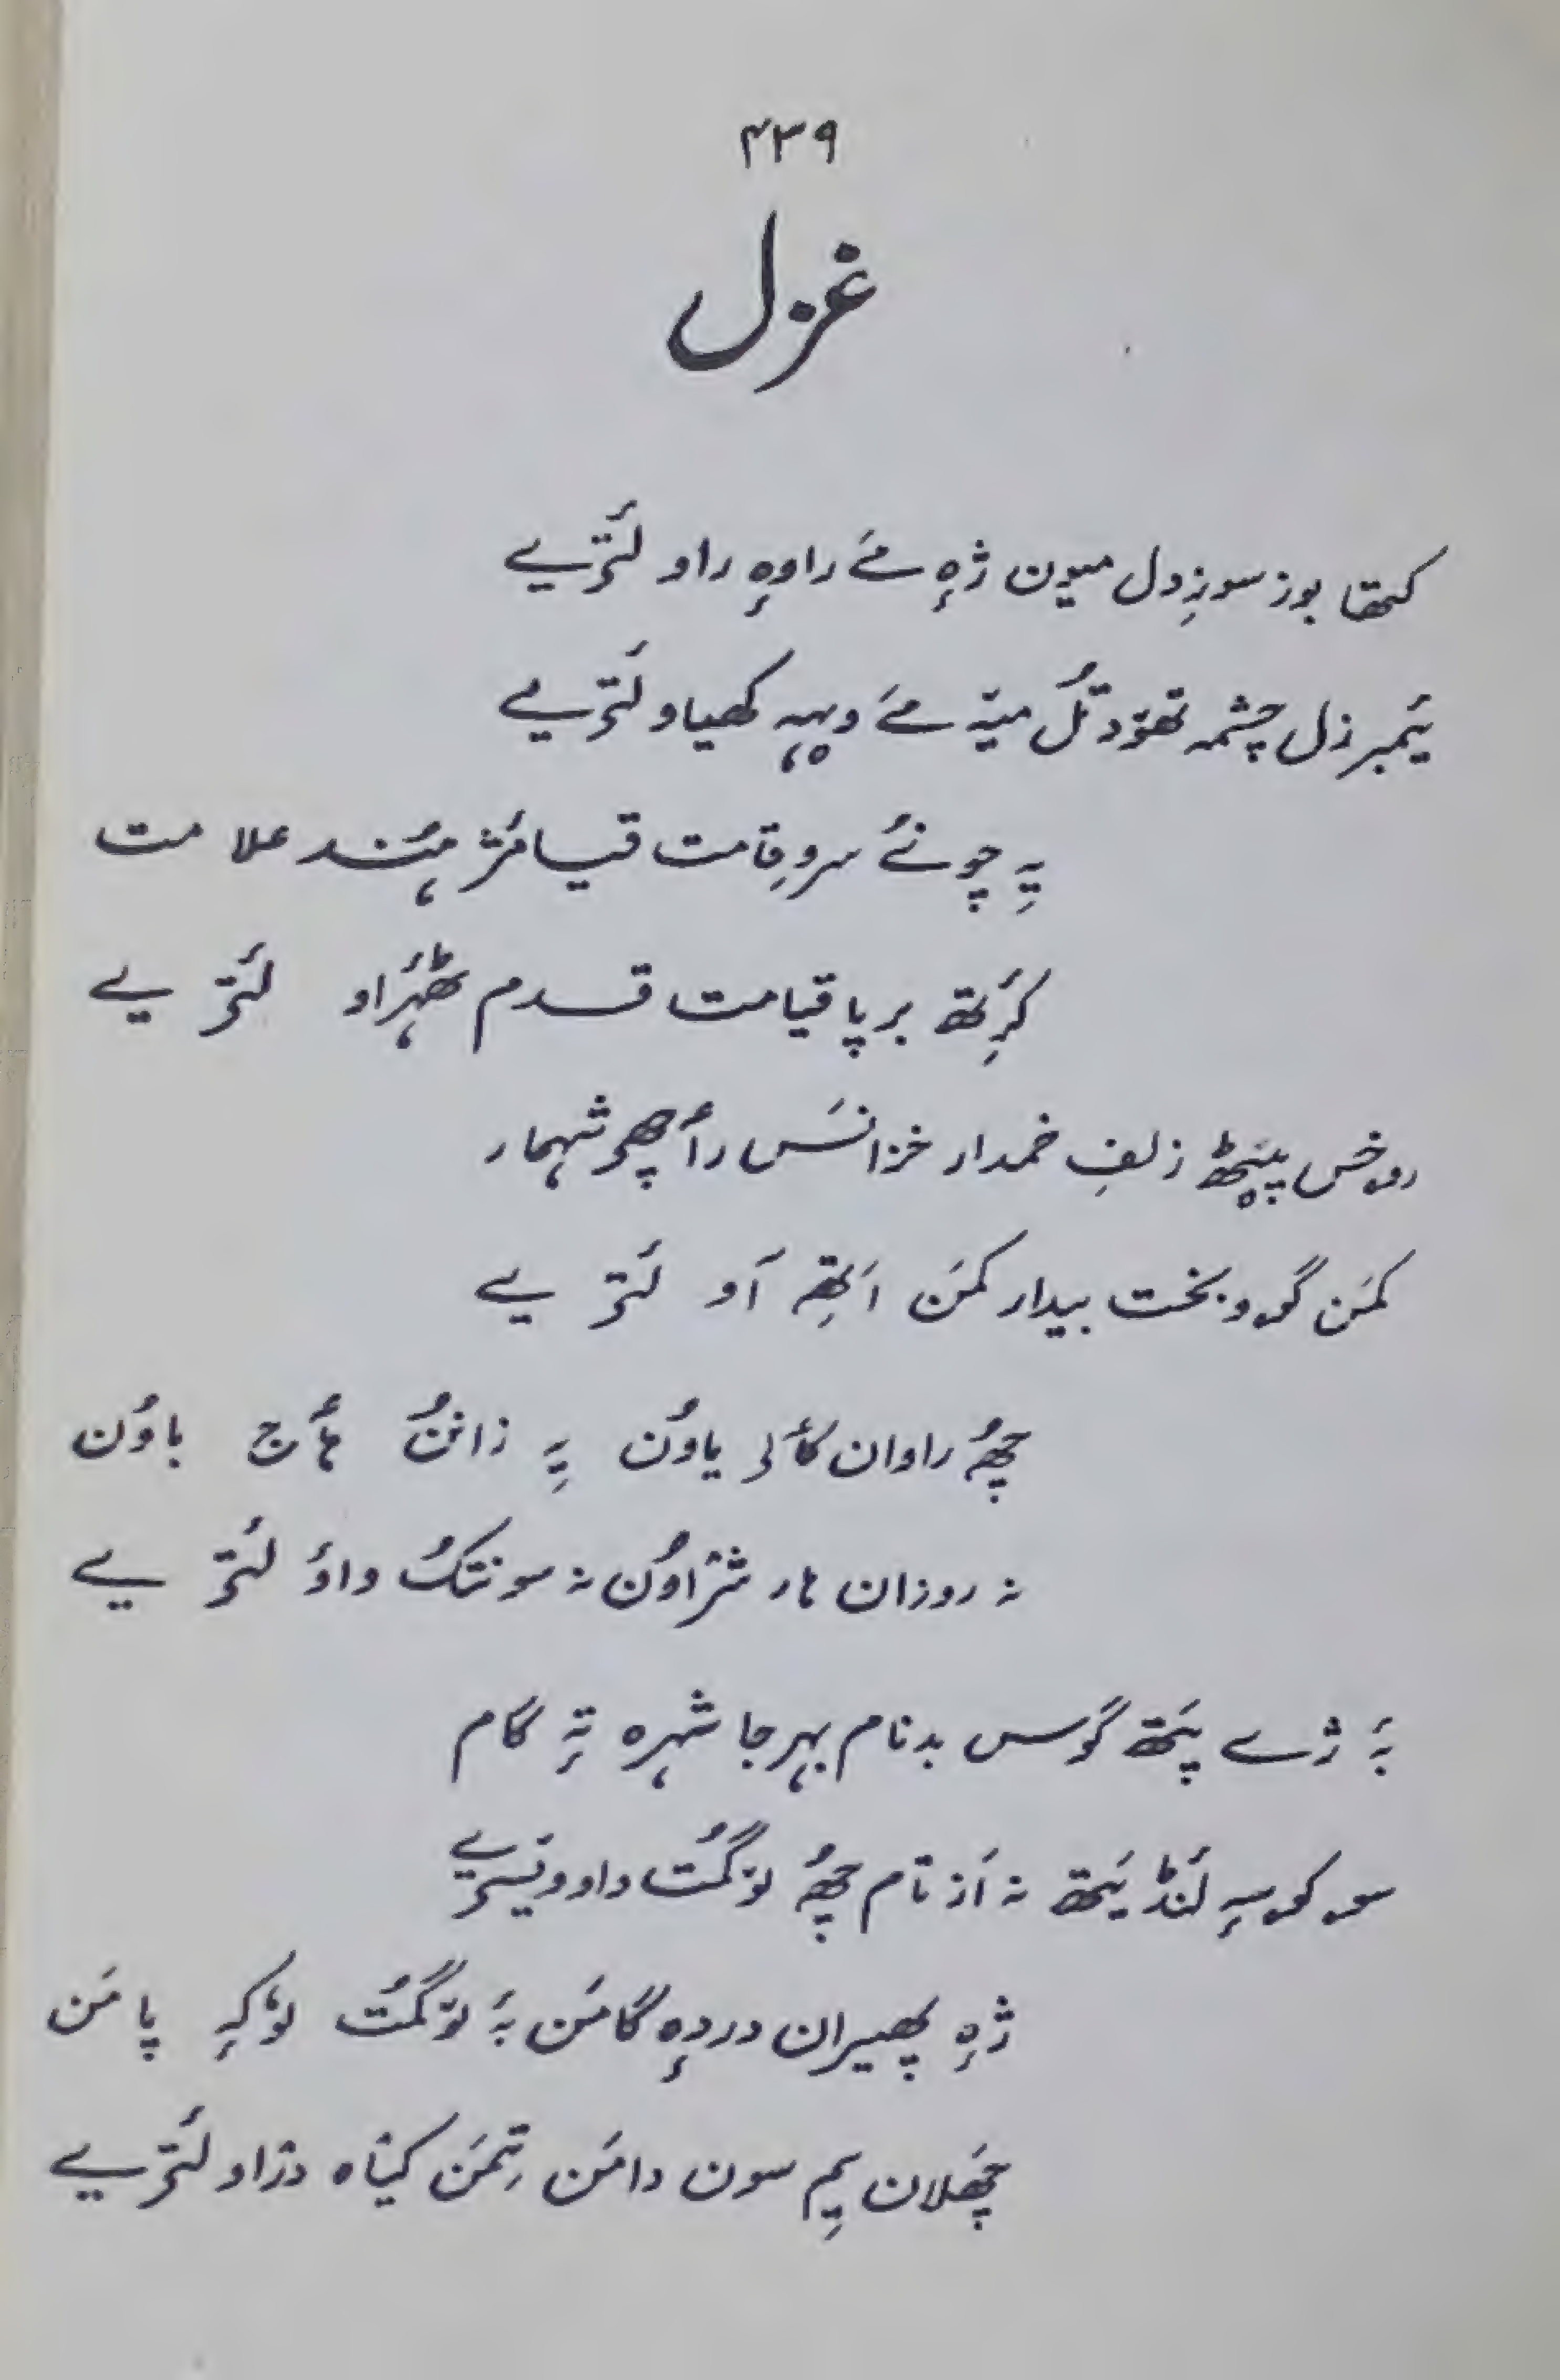 ۴۳۹
غزل
کتھا بوز سوزِ دل میون ژٕہ مے راوٕہ راو لَتٔریے
یمبرزل چشمہ تھوٚد تُل میہٚ مے ویہہ کھیاو لَتٔریے
یہِ چونُے سروِقامت قیامٔژ ہٕند علامت
کٔرِتھ برپا قیامت قدم ٹھہراو لَتٔریے
روخس پیٚٹھ زلفِ خمدار خزانَس رأچھی شہمار
کمَن گوو بخت بیدار کمَن اَتھِ آو لَتٔریے
چھُہ راوان کٲلی یاوُن یہِ زانُن ہٲج باوُن
نہ روزان ہار شرٛاوُن نہ سونتکُ واوٗ لَتٔریے
بہٕ ژے پتھ گوس بدنام بہر جا شہرہ تہِ گام
سو کوسہِ لَنڈ یَتھ نہ اَز تام چھُہ لوٚگمُت داو ویٚسریے
ژٕہ پھیران دردٕہ گامَن بہٕ لوٚگمُت لوٗکہِ پامَن
چھلان یِم سون دامَن تِمَن کیٛاہ دزاو لَتٔریے